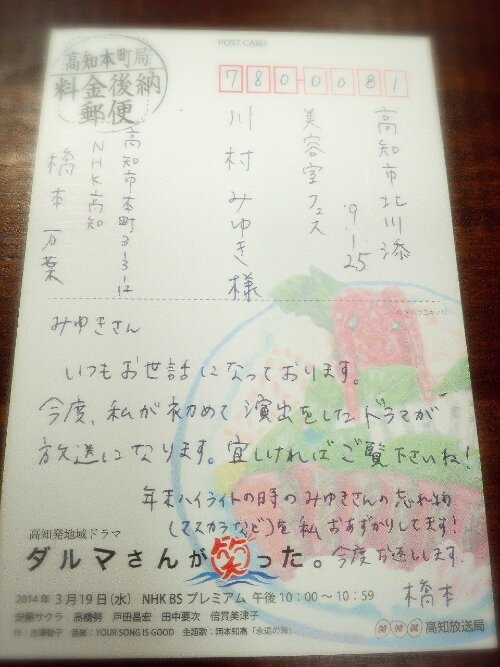 POST CARD
高知本町局
料金後納
郵便
7800081
高知市北川添
9-1-25
美容室フェス
川村みゆき様
高知市本町3-3-12
NHK高知
橋本万葉
みゆきさん
いつもお世話になっております。
今度、私が初めて演出をしたドラマが
放送になります。宜しければご覧下さいね!
年末ハイライトの時のみゆきさんの忘れ物
(マスカラなど)を私おあずかりしてます!
今度お返しします。
橋本
高知発地域ドラマ
ダルマさんが笑った。
2014年 3月19日(水) NHK BSプレミアム 午後10:00〜10:59
安藤サクラ 高橋努 戸田昌宏 田中要次 倍賞美津子
音楽:YOUR SONG IS GOOD 主題歌:岡本知高
高知放送局